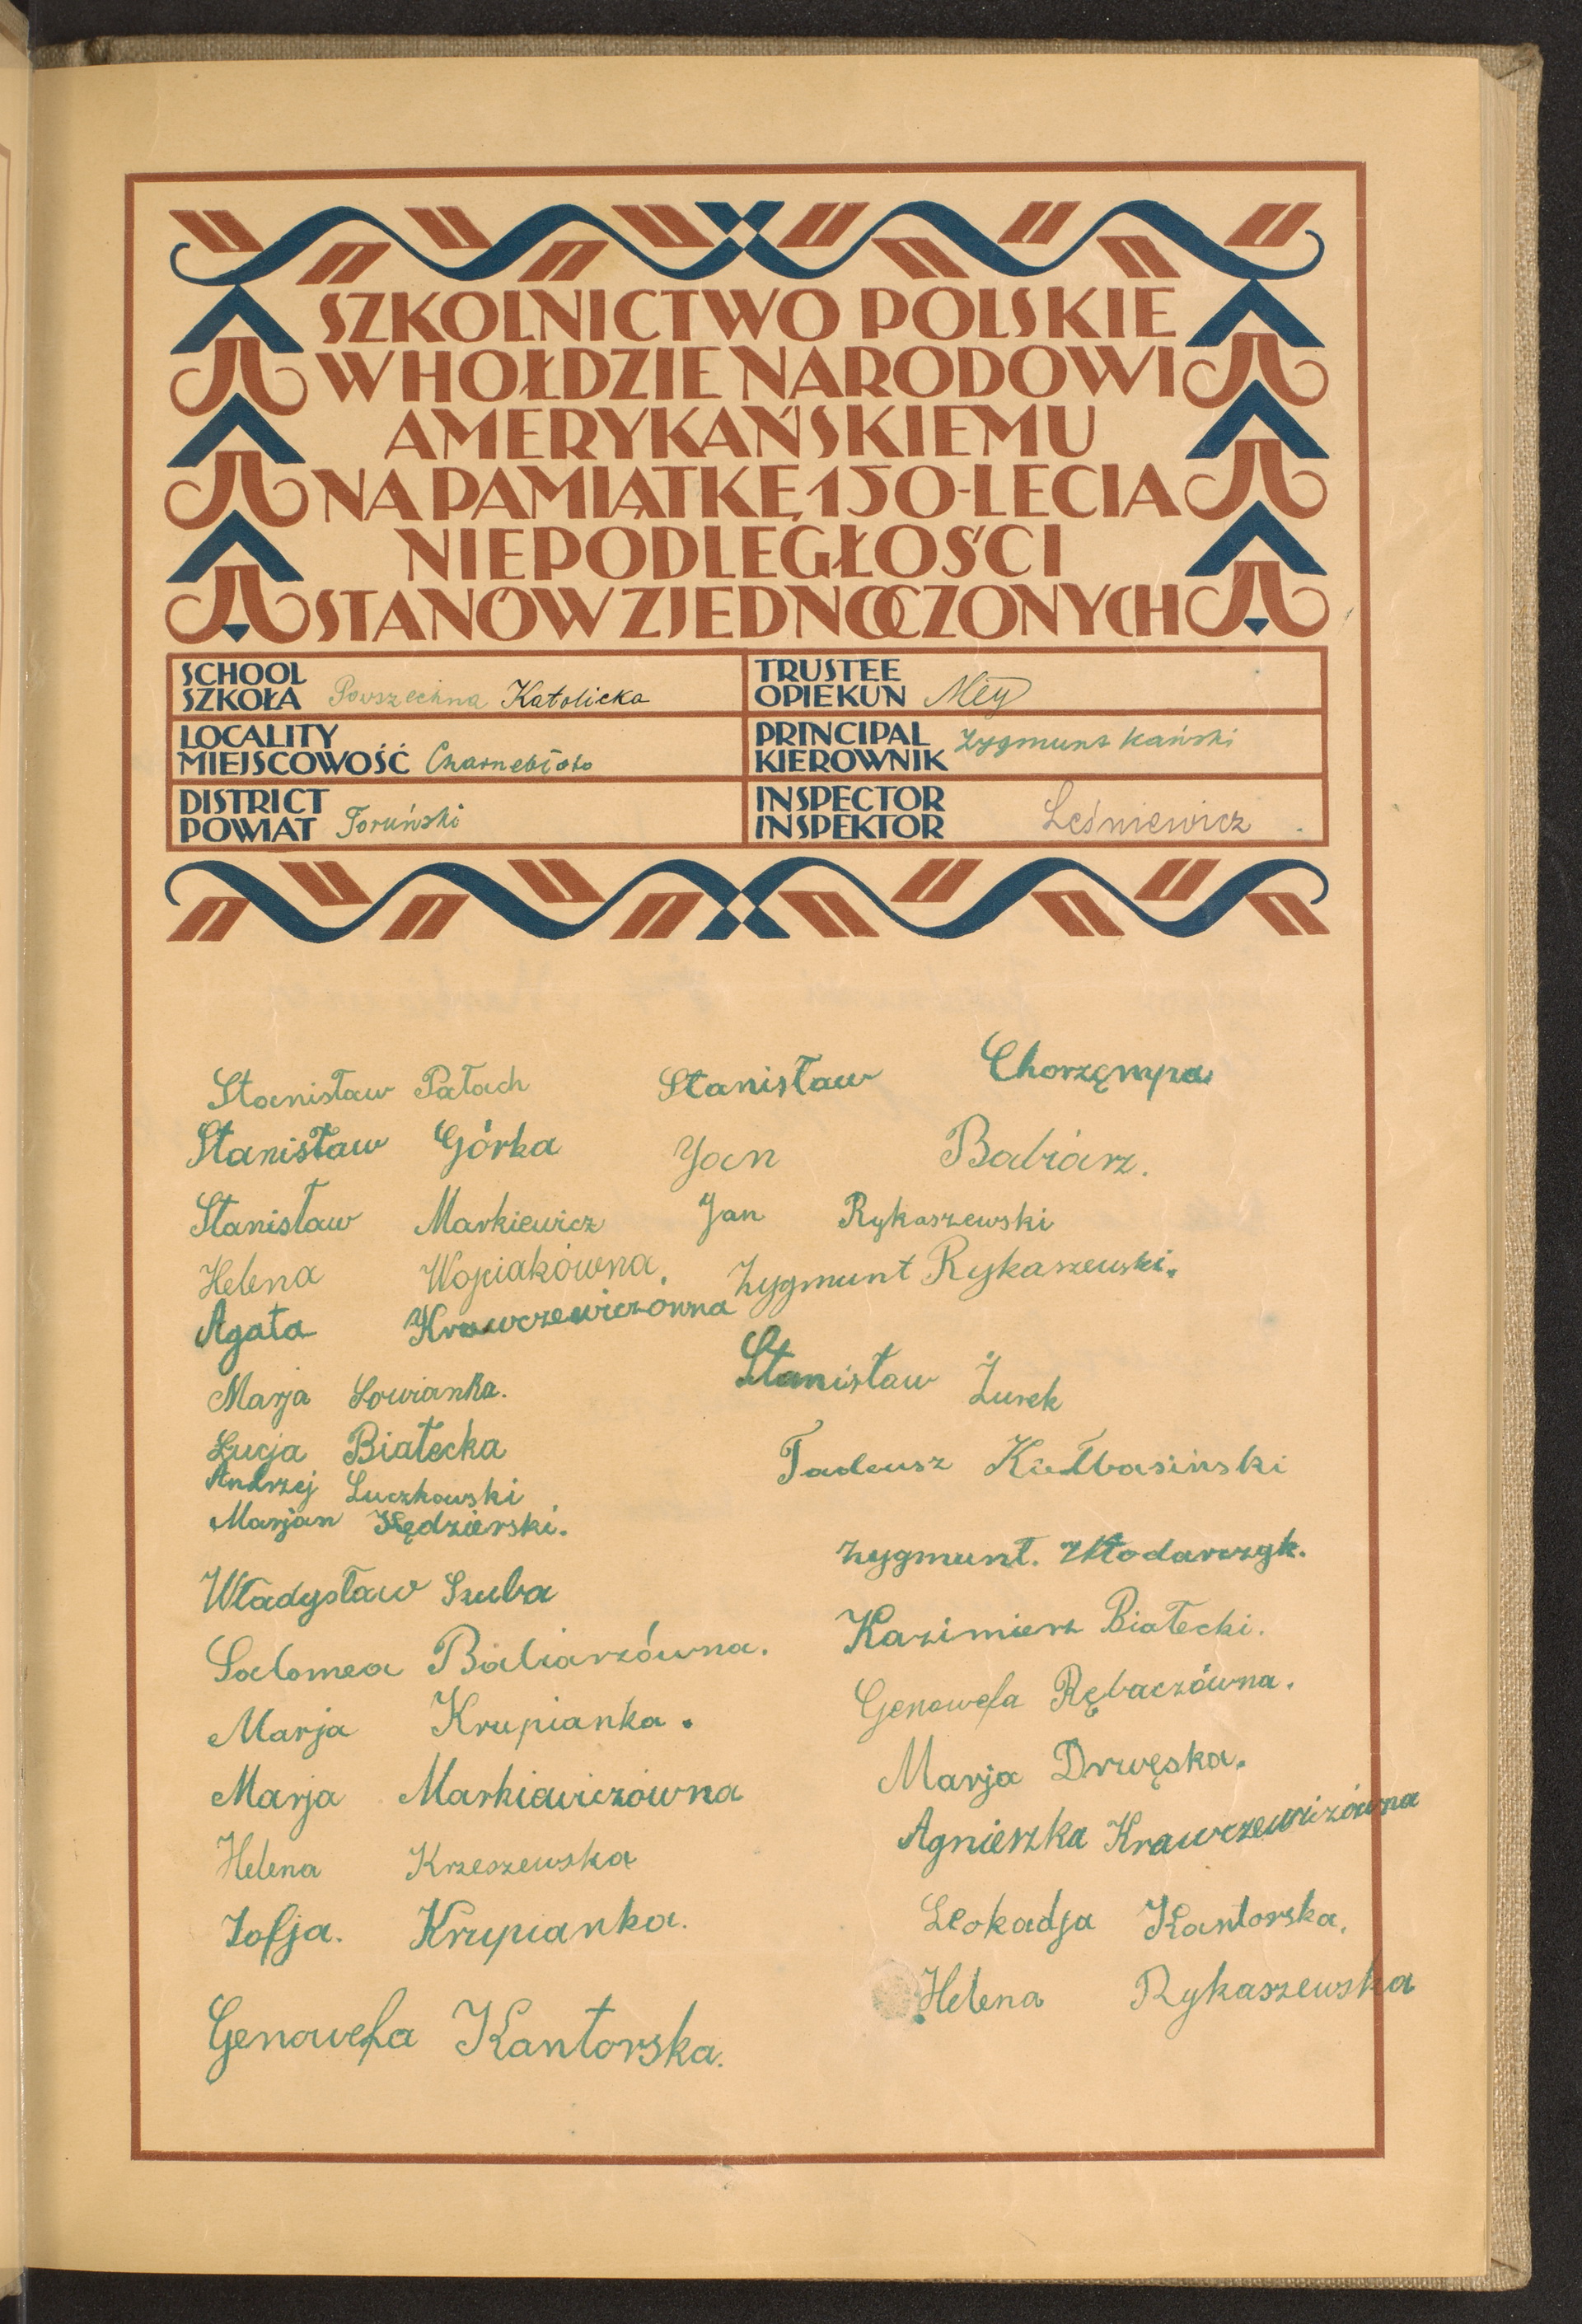 SZKOLNICTWO POLSKIE
W HOŁDZIE NARODOWI
AMERYKAŃSKIEMU
NA PAMIĄTKĘ 150-LECIA
NIEPODLEGŁOŚCI
STANÓW ZJEDNOCZONYCH
SCHOOL
SZKOŁA Powszechna Katolicka
TRUSTEE
OPIEKUN Mey
LOCALITY
MIEJSCOWOŚĆ Czarnebłoto
PRINCIPAL
KIEROWNIK Zygmunt Kański
DISTRICT
POWIAT Toruński
INSPECTOR
INSPEKTOR Leśniewicz
Stanisław Pałach
Stanisław Górka
Stanisław Markiewicz
Helena Wojciakówna.
Agata Krawczewiczówna
Marja Sowianka.
Łucja Białecka
Andrzej Luczkowski
Marjan Kędzierski.
Władysław Szuba
Salomea Babiarzówna.
Marja Krupianka.
Marja Markiewiczówna
Helena Krzeszewska
Zofja. Krupianka.
Genowefa Kantorska.
Stanisław Chorzęmpa
Jan Babiarz.
Jan Rykaszewski
Zygmunt Rykaszewski.
Stanisław Żurek
Tadeusz Kiełbasiński
Zygmunt. Włodarczyk.
Kazimierz Białecki.
Genowefa Rębaczówna.
Marja Drwęska.
Agnieszka Krawczewiczówna
Leokadja Kantorska.
Helena Rykaszewska